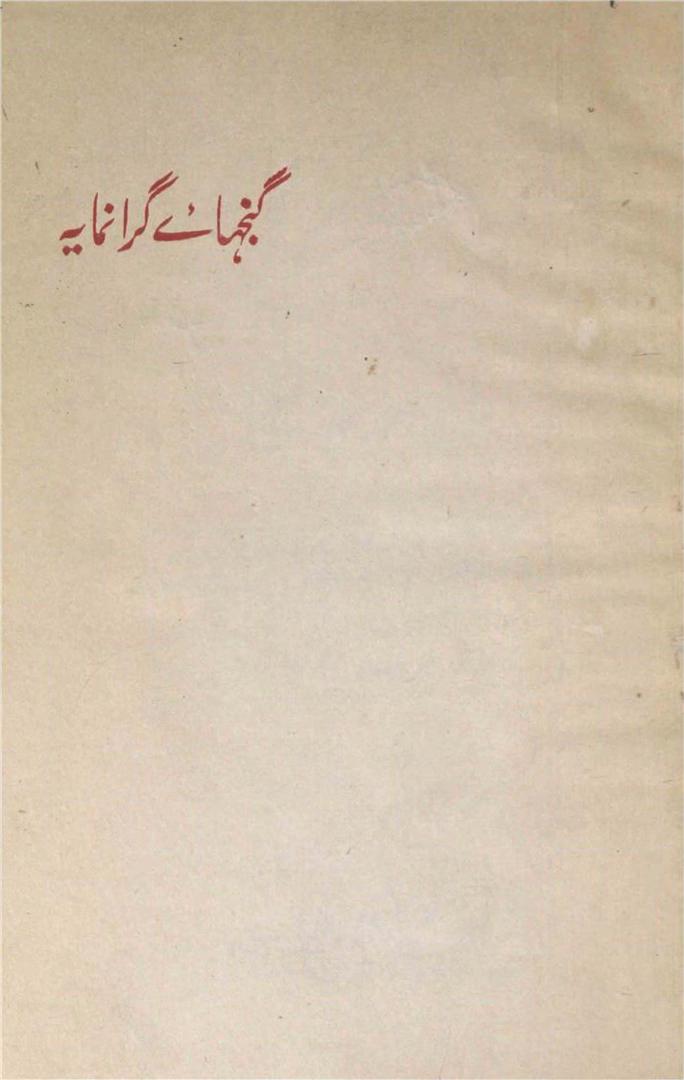 گنجہائے گرانمایہ